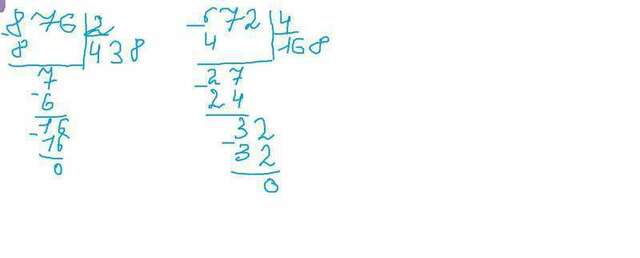 -876|2
8 |438
7
-6
16
-16
0
-672|4
4 |168
-27
24
32
-32
0